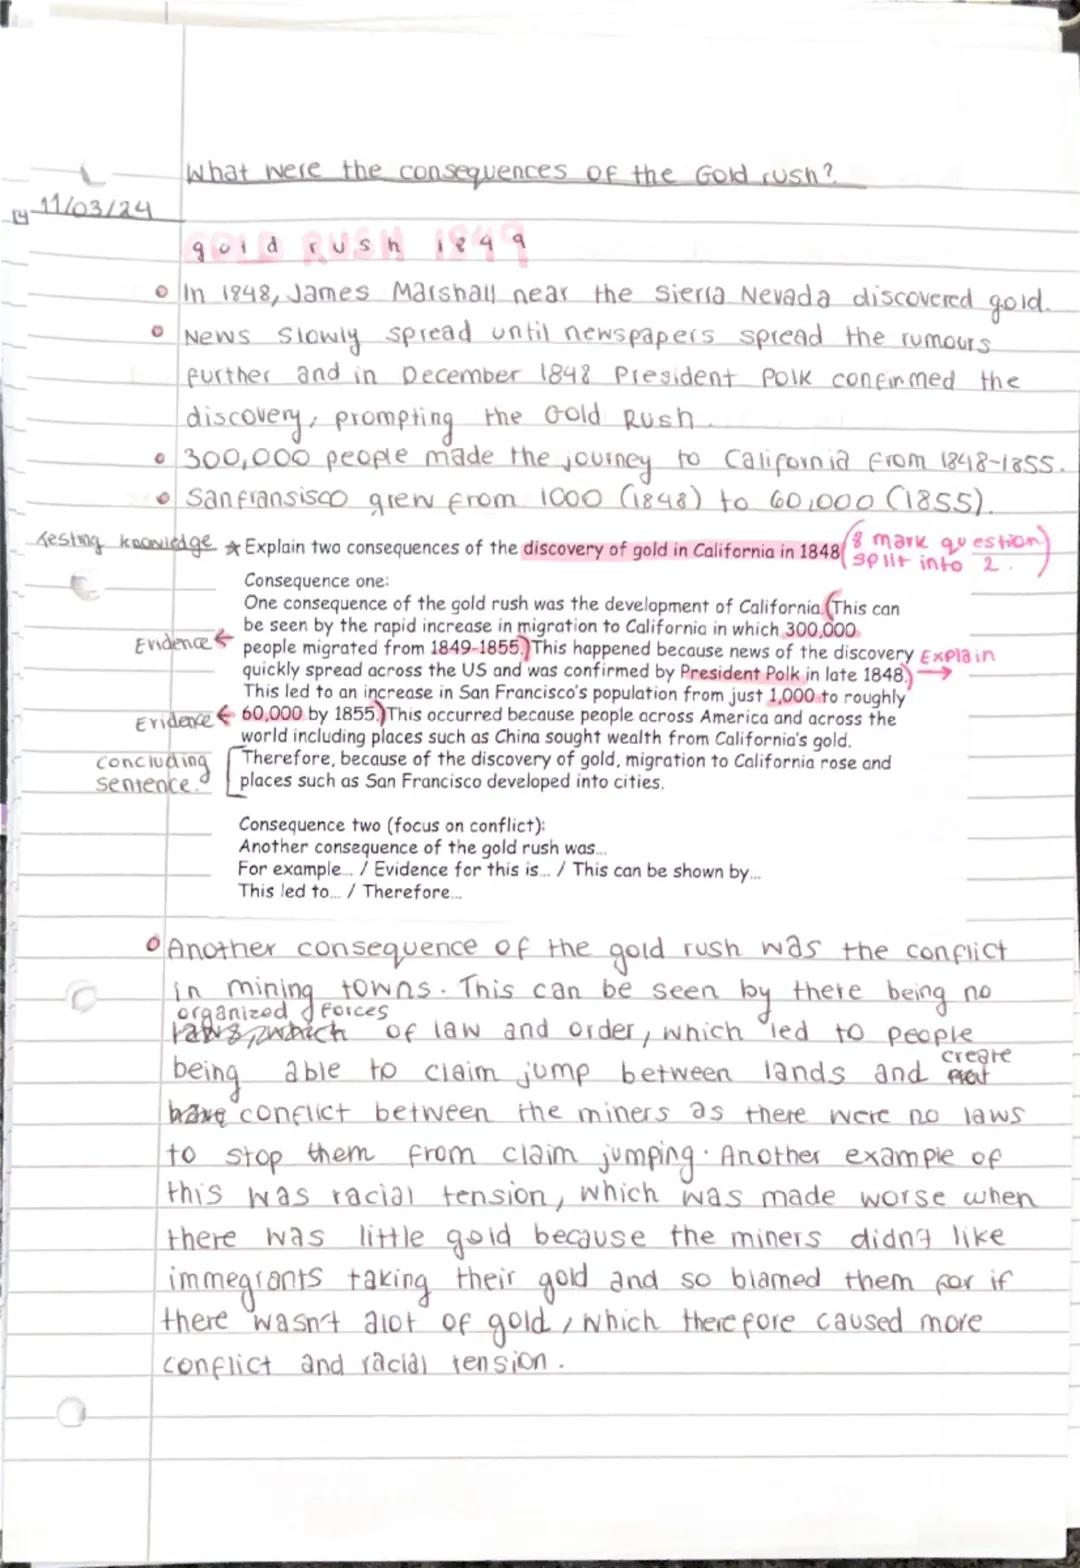 What were the consequences of the Gold rush?
11/03/24
gold rush 1849
In 1848, James Marshall near the Sierra Nevada discovered gold.
News slowly spread until newspapers spread the rumours
further and in December 1848 President Polk confirmed the
discovery, prompting the Gold Rush.
300,000 people made the journey to California from 1848-1855.
Sanfransisco grew from 1000 (1848) to 60,000 (1855).
Testing knowledge ★ Explain two consequences of the discovery of gold in California in 1848 (8 mark question
split into 2.)
Consequence one:
One consequence of the gold rush was the development of California. (This can
be seen by the rapid increase in migration to California in which 300,000
Evidence ← people migrated from 1849-1855.) This happened because news of the discovery Explain
quickly spread across the US and was confirmed by President Polk in late 1848.) →
This led to an increase in San Francisco's population from just 1,000 to roughly
Evidence ← 60,000 by 1855.) This occurred because people across America and across the
world including places such as China sought wealth from California's gold.
concluding Therefore, because of the discovery of gold, migration to California rose and
sentence. places such as San Francisco developed into cities.
Consequence two (focus on conflict):
Another consequence of the gold rush was...
For example... / Evidence for this is... / This can be shown by...
This led to... / Therefore...
Another consequence of the gold rush was the conflict
in mining towns. This can be seen by there being no
organized forces
of law and order, which led to people
create
being able to claim jump between lands and
conflict between the miners as there were no laws
to stop them from claim jumping. Another example of
this was racial tension, which was made worse when
there was little gold because the miners didn't like
immegrants taking their gold and so blamed them for if
there wasn't alot of gold, which therefore caused more
conflict and racial tension.